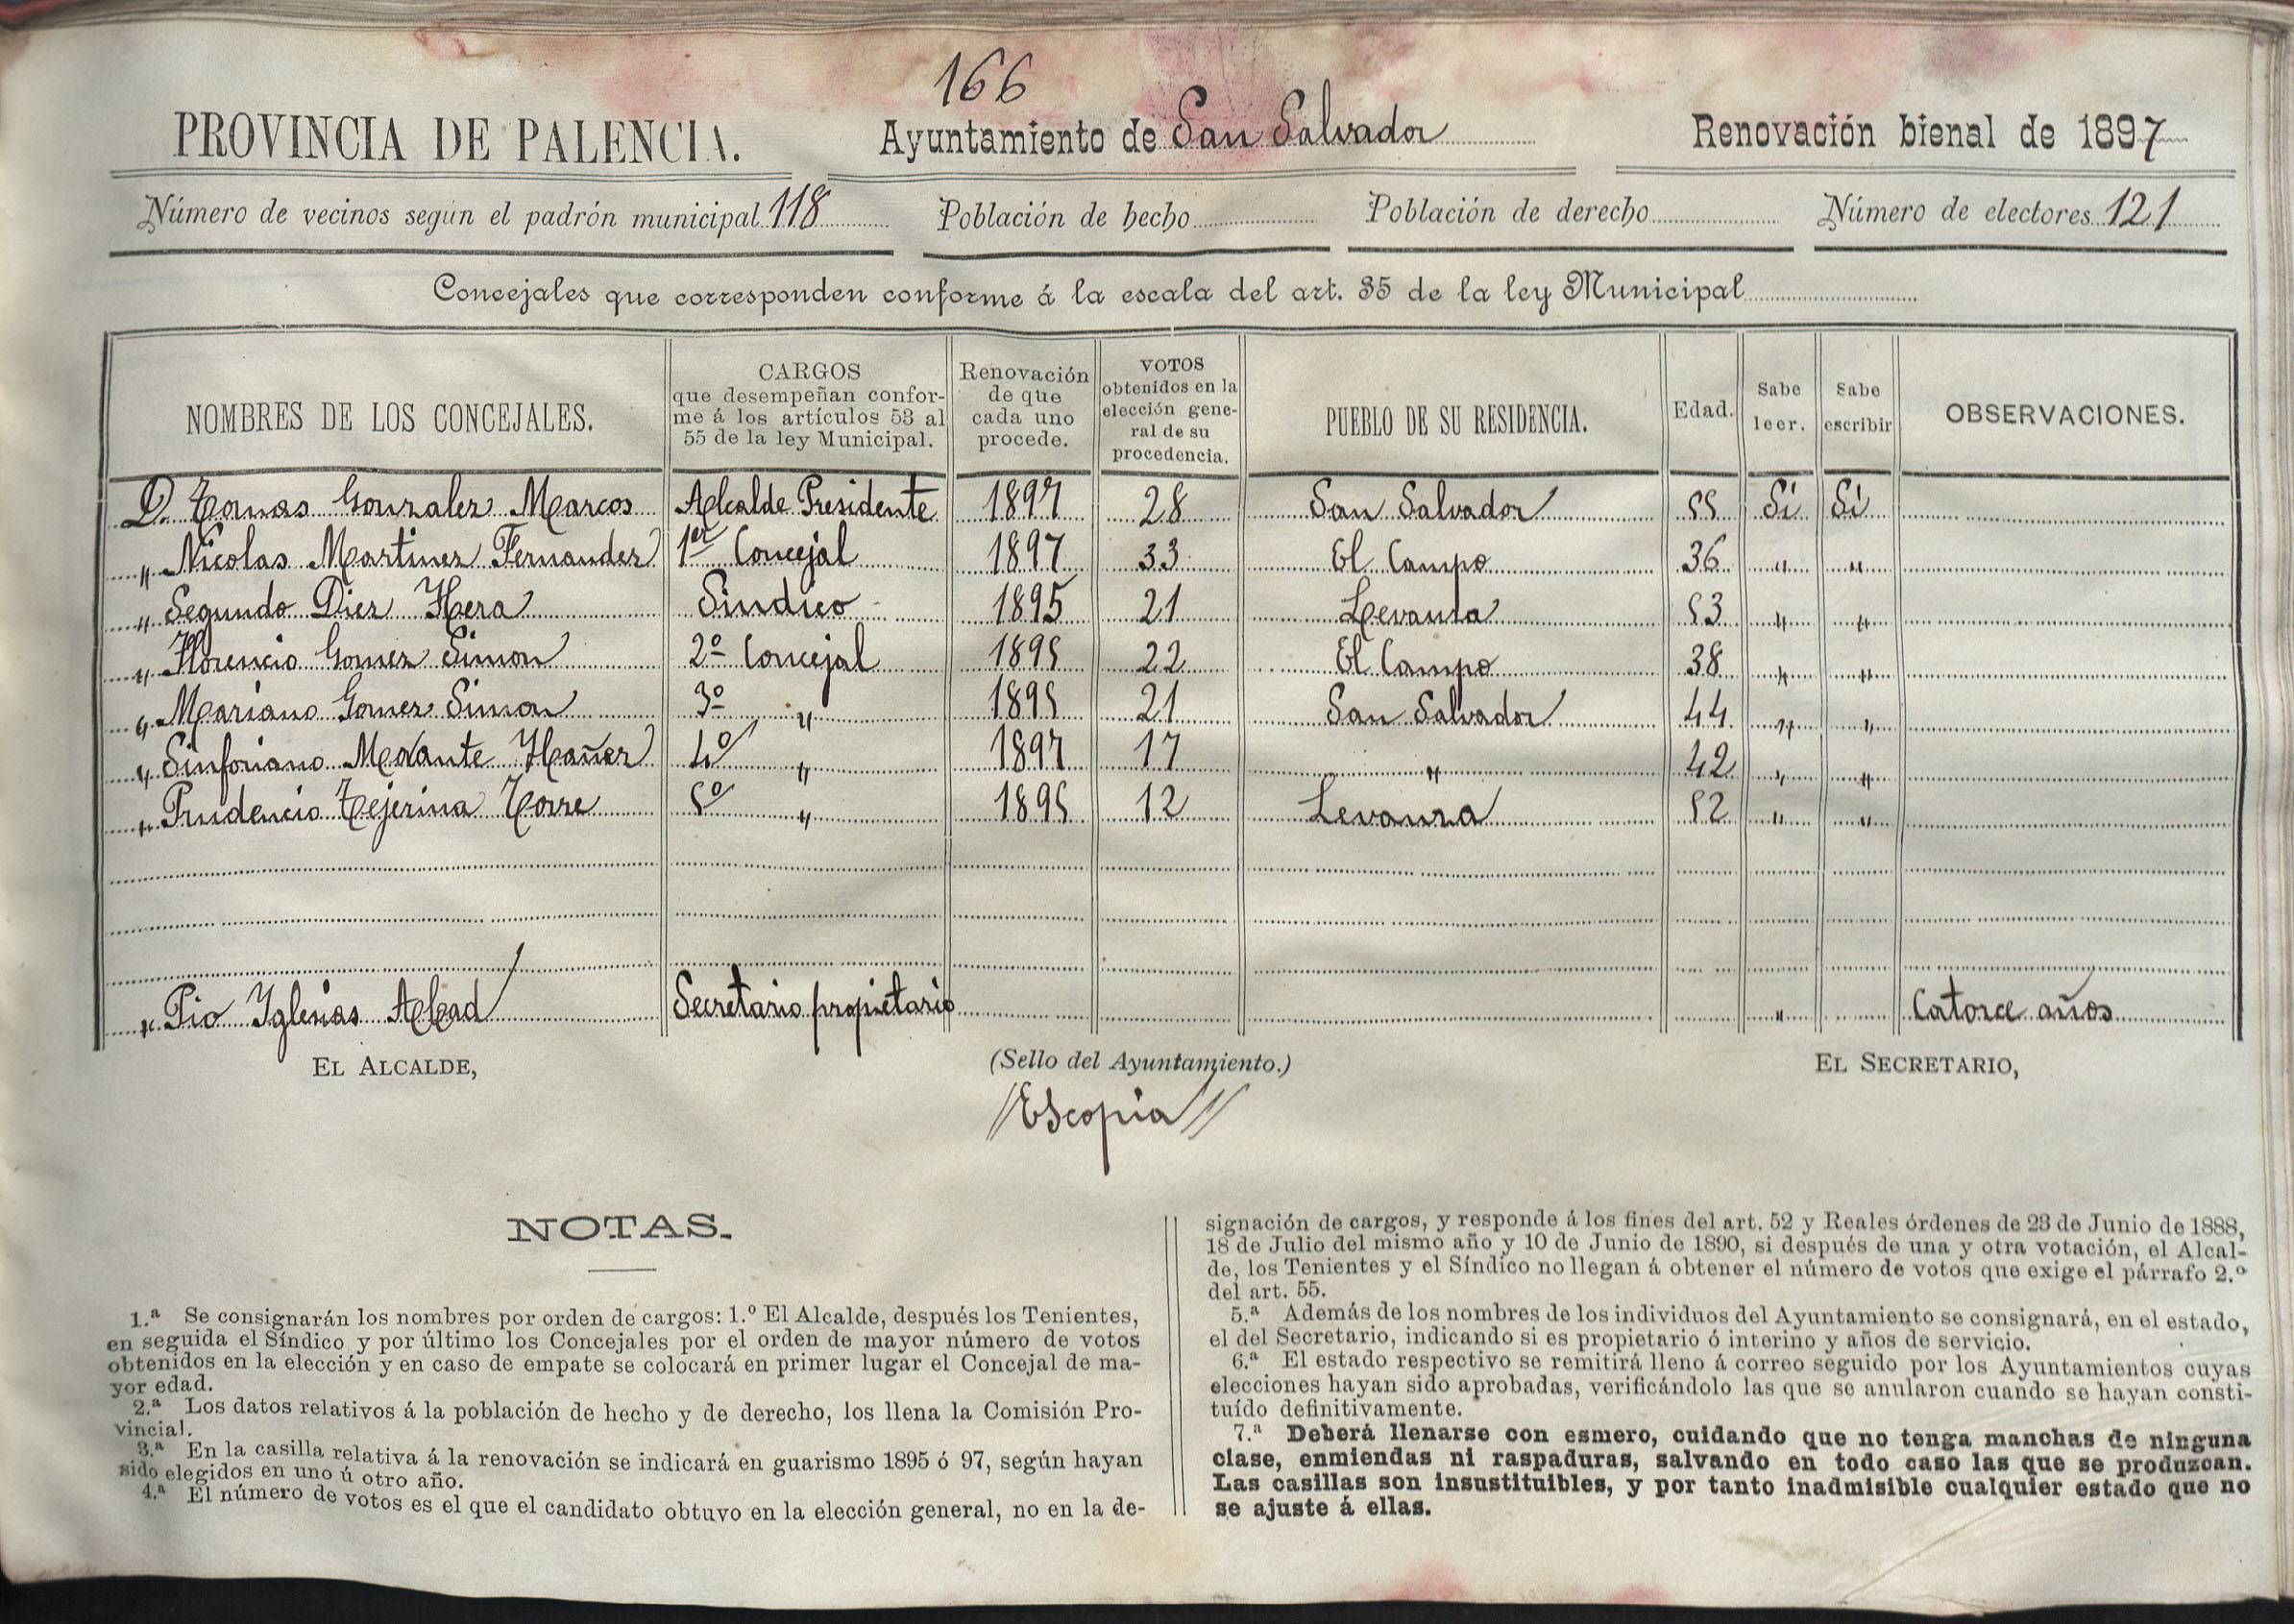 166
PROVINCIA DE PALENCIA. Ayuntamiento de San Salvador Renovación bienal de 1897
Número de vecinos según el padrón municipal 118 Población de hecho Población de derecho Número de electores 121
Concejales que corresponden conforme á la escala del art. 35 de la ley Municipal
NOMBRES DE LOS CONCEJALES. CARGOS que desempeñan conforme á los artículos 53 al 55 de la ley Municipal. Renovación de que cada uno procede. VOTOS obtenidos en la elección general de su procedencia. PUEBLO DE SU RESIDENCIA. Edad. Sabe leer. Sabe escribir OBSERVACIONES.
D. Tomas Gonzalez Marcos Alcalde Presidente 1897 28 San Salvador 55 Si Si
" Nicolas Martinez Fernandez 1er Concejal 1897 33 El Campo 36 " "
" Segundo Diez Hera Sindico 1895 21 Levanza 53 " "
" Florencio Gomez Simon 2º Concejal 1895 22 El Campo 38 " "
" Mariano Gomez Simon 3º " 1895 21 San Salvador 44 " "
" Sinforiano Morante 4º " 1897 17 " 42 " "
" Prudencio Tejerina Torre 5º " 1895 12 Levanza 52 " "
" Pio Iglesias Secretario propietario " Catorce años
EL ALCALDE, (Sello del Ayuntamiento.) EL SECRETARIO,
//Es copia//
NOTAS.
1.ª Se consignarán los nombres por orden de cargos: 1.º El Alcalde, después los Tenientes,
en seguida el Síndico y por último los Concejales por el orden de mayor número de votos
obtenidos en la elección y en caso de empate se colocará en primer lugar el Concejal de ma-
yor edad.
2.ª Los datos relativos á la población de hecho y de derecho, los llena la Comisión Pro-
vincial.
3.ª En la casilla relativa á la renovación se indicará en guarismo 1895 ó 97, según hayan
sido elegidos en uno ú otro año.
4.ª El número de votos es el que el candidato obtuvo en la elección general, no en la de-
signación de cargos, y responde á los fines del art. 52 y Reales órdenes de 23 de Junio de 1888,
18 de Julio del mismo año y 10 de Junio de 1890, si después de una y otra votación, el Alcal-
de, los Tenientes y el Síndico no llegan á obtener el número de votos que exige el párrafo 2.º
del art. 55.
5.ª Además de los nombres de los individuos del Ayuntamiento se consignará, en el estado,
el del Secretario, indicando si es propietario ó interino y años de servicio.
6.ª El estado respectivo se remitirá lleno á correo seguido por los Ayuntamientos cuyas
elecciones hayan sido aprobadas, verificándolo las que se anularon cuando se hayan consti-
tuído definitivamente.
7.ª Deberá llenarse con esmero, cuidando que no tenga manchas de ninguna
clase, enmiendas ni raspaduras, salvando en todo caso las que se produzcan.
Las casillas son insustituibles, y por tanto inadmisible cualquier estado que no
se ajuste á ellas.